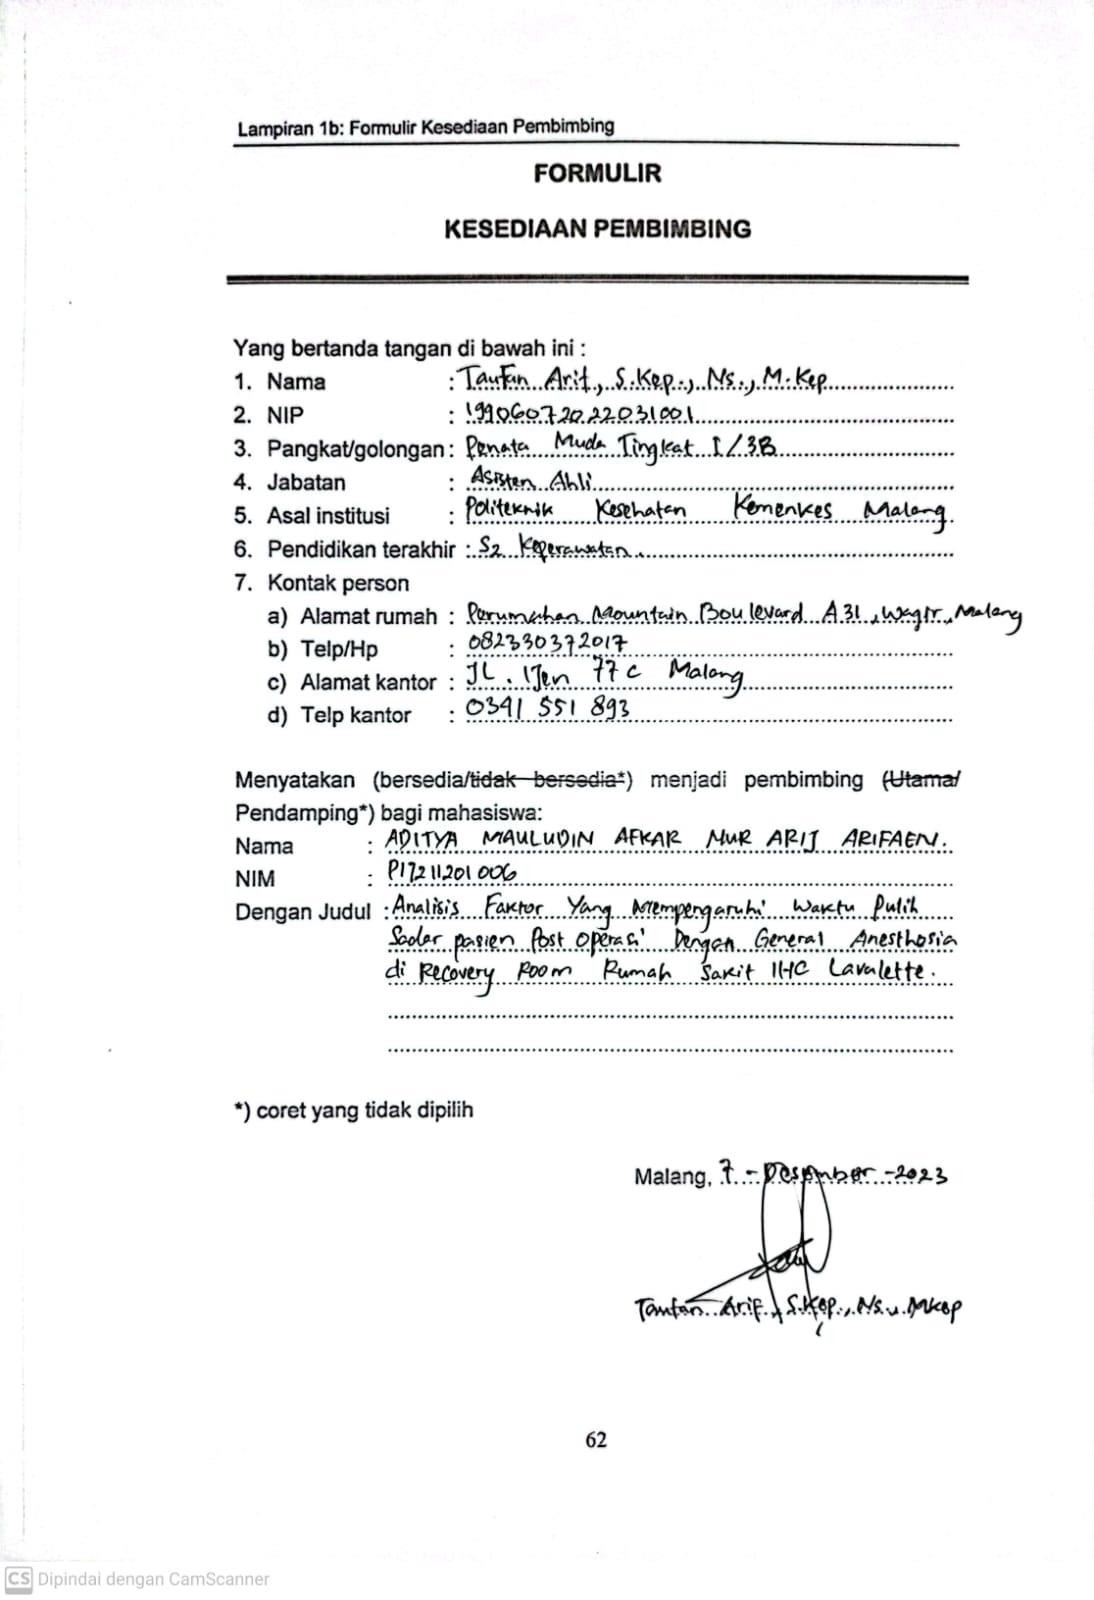 Lampiran 1b: Formulir Kesediaan Pembimbing
FORMULIR
KESEDIAAN PEMBIMBING
Yang bertanda tangan di bawah ini :
1. Nama : Taufan Arif, S.Kep., Ns., M.Kep
2. NIP : 19906072022031001
3. Pangkat/golongan : Penata Muda Tingkat I / 3B
4. Jabatan : Asisten Ahli
5. Asal institusi : Politeknik Kesehatan Kemenkes Malang
6. Pendidikan terakhir : S2 Keperawatan
7. Kontak person
a) Alamat rumah : Perumahan Mountain Boulevard A31, Wagir, Malang
b) Telp/Hp : 082330372017
c) Alamat kantor : JL. Ijen 77 C Malang
d) Telp kantor : 0341 551 893
Menyatakan (bersedia/tidak bersedia*) menjadi pembimbing (Utama/
Pendamping*) bagi mahasiswa:
Nama : ADITYA MAULUDIN AFKAR NUR ARIJ ARIFAEN.
NIM : P17211201006
Dengan Judul : Analisis Faktor Yang Mempengaruhi Waktu Pulih
Sadar pasien Post Operasi Dengan General Anesthesia
di Recovery Room Rumah Sakit IHC Lavalette.
*) coret yang tidak dipilih
Malang, 7 - Desember - 2023
Taufan Arif, S.Kep., Ns., MKep
62
CS Dipindai dengan CamScanner